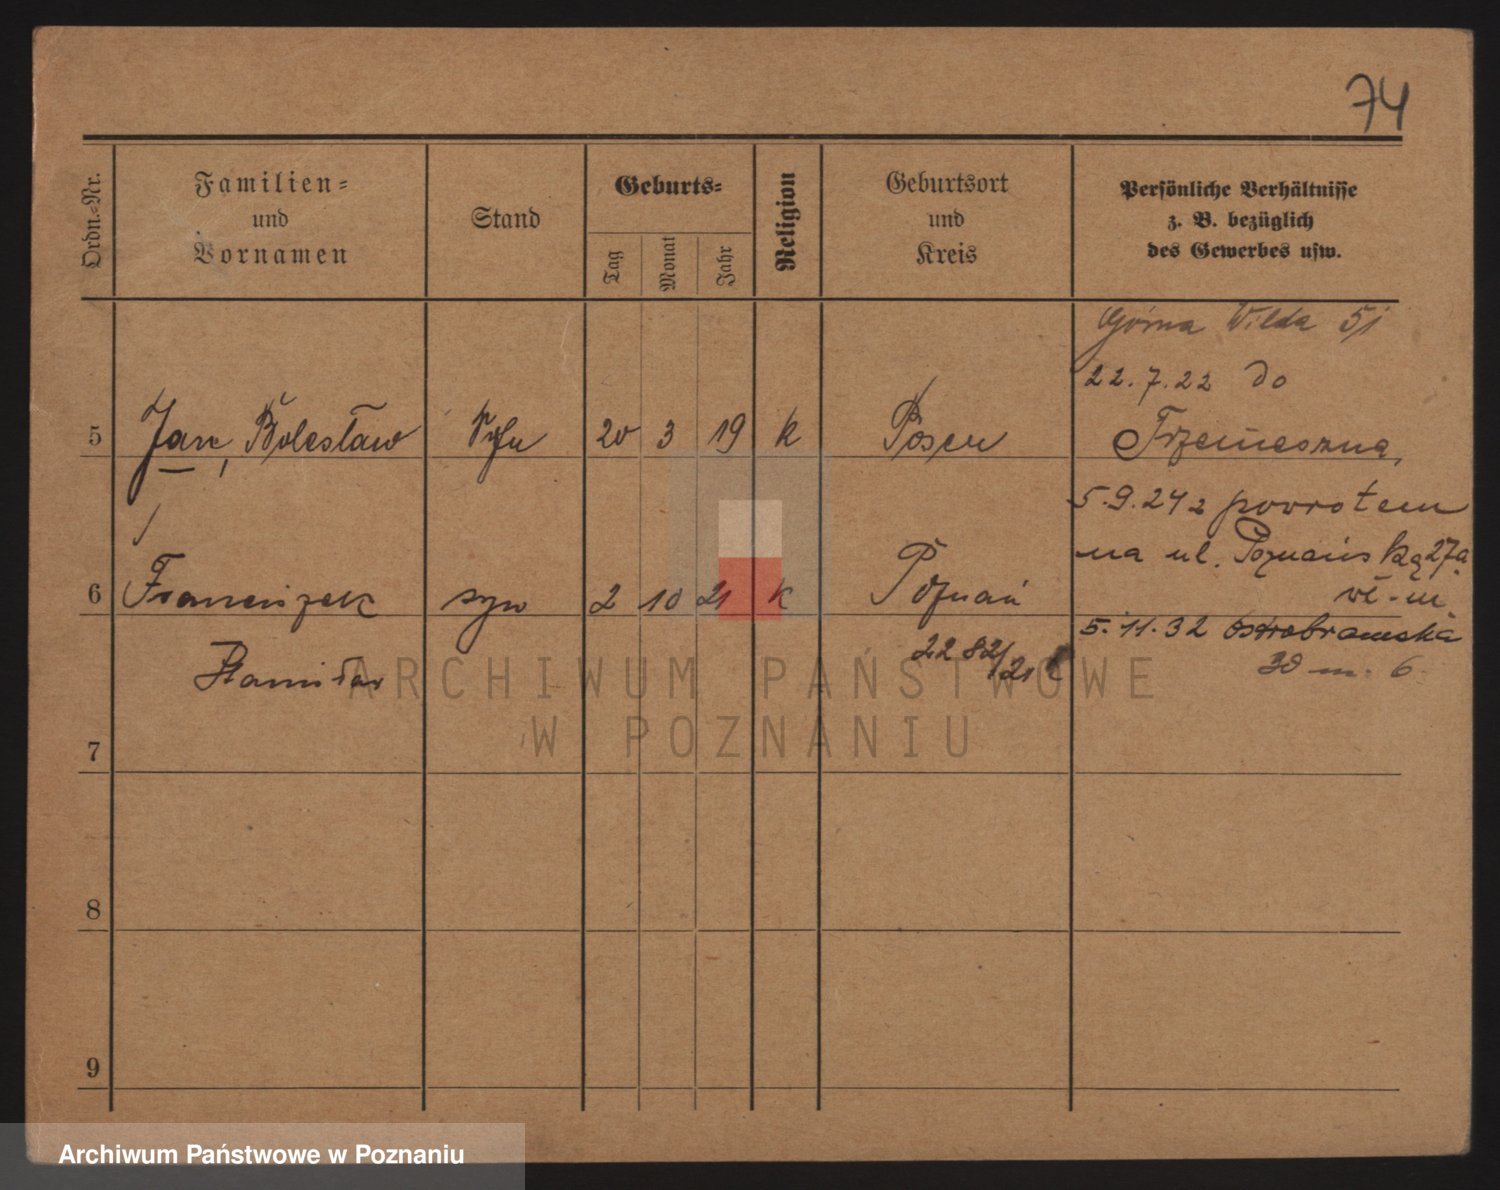 74
Ordn.-Nr.
Familien-
und
Vornamen
Stand
Geburts-
Tag
Monat
Jahr
Religion
Geburtsort
und
Kreis
Persönliche Verhältnisse
z. B. bezüglich
des Gewerbes usw.
Górna Wilda 51
22.7.22 do
5 Jan, Bolesław Sohn 20 3 19 k Posen
Trzemeszna,
5.9.24 z powrotem
na ul. Poznańską 27a
6 Franciszek syn 2 10 21 k Poznań
Stanisław
2282/21
5.11.32 Ostrobramska
30 m. 6
7
8
9
ARCHIWUM PAŃSTWOWE
W POZNANIU
Archiwum Państwowe w Poznaniu